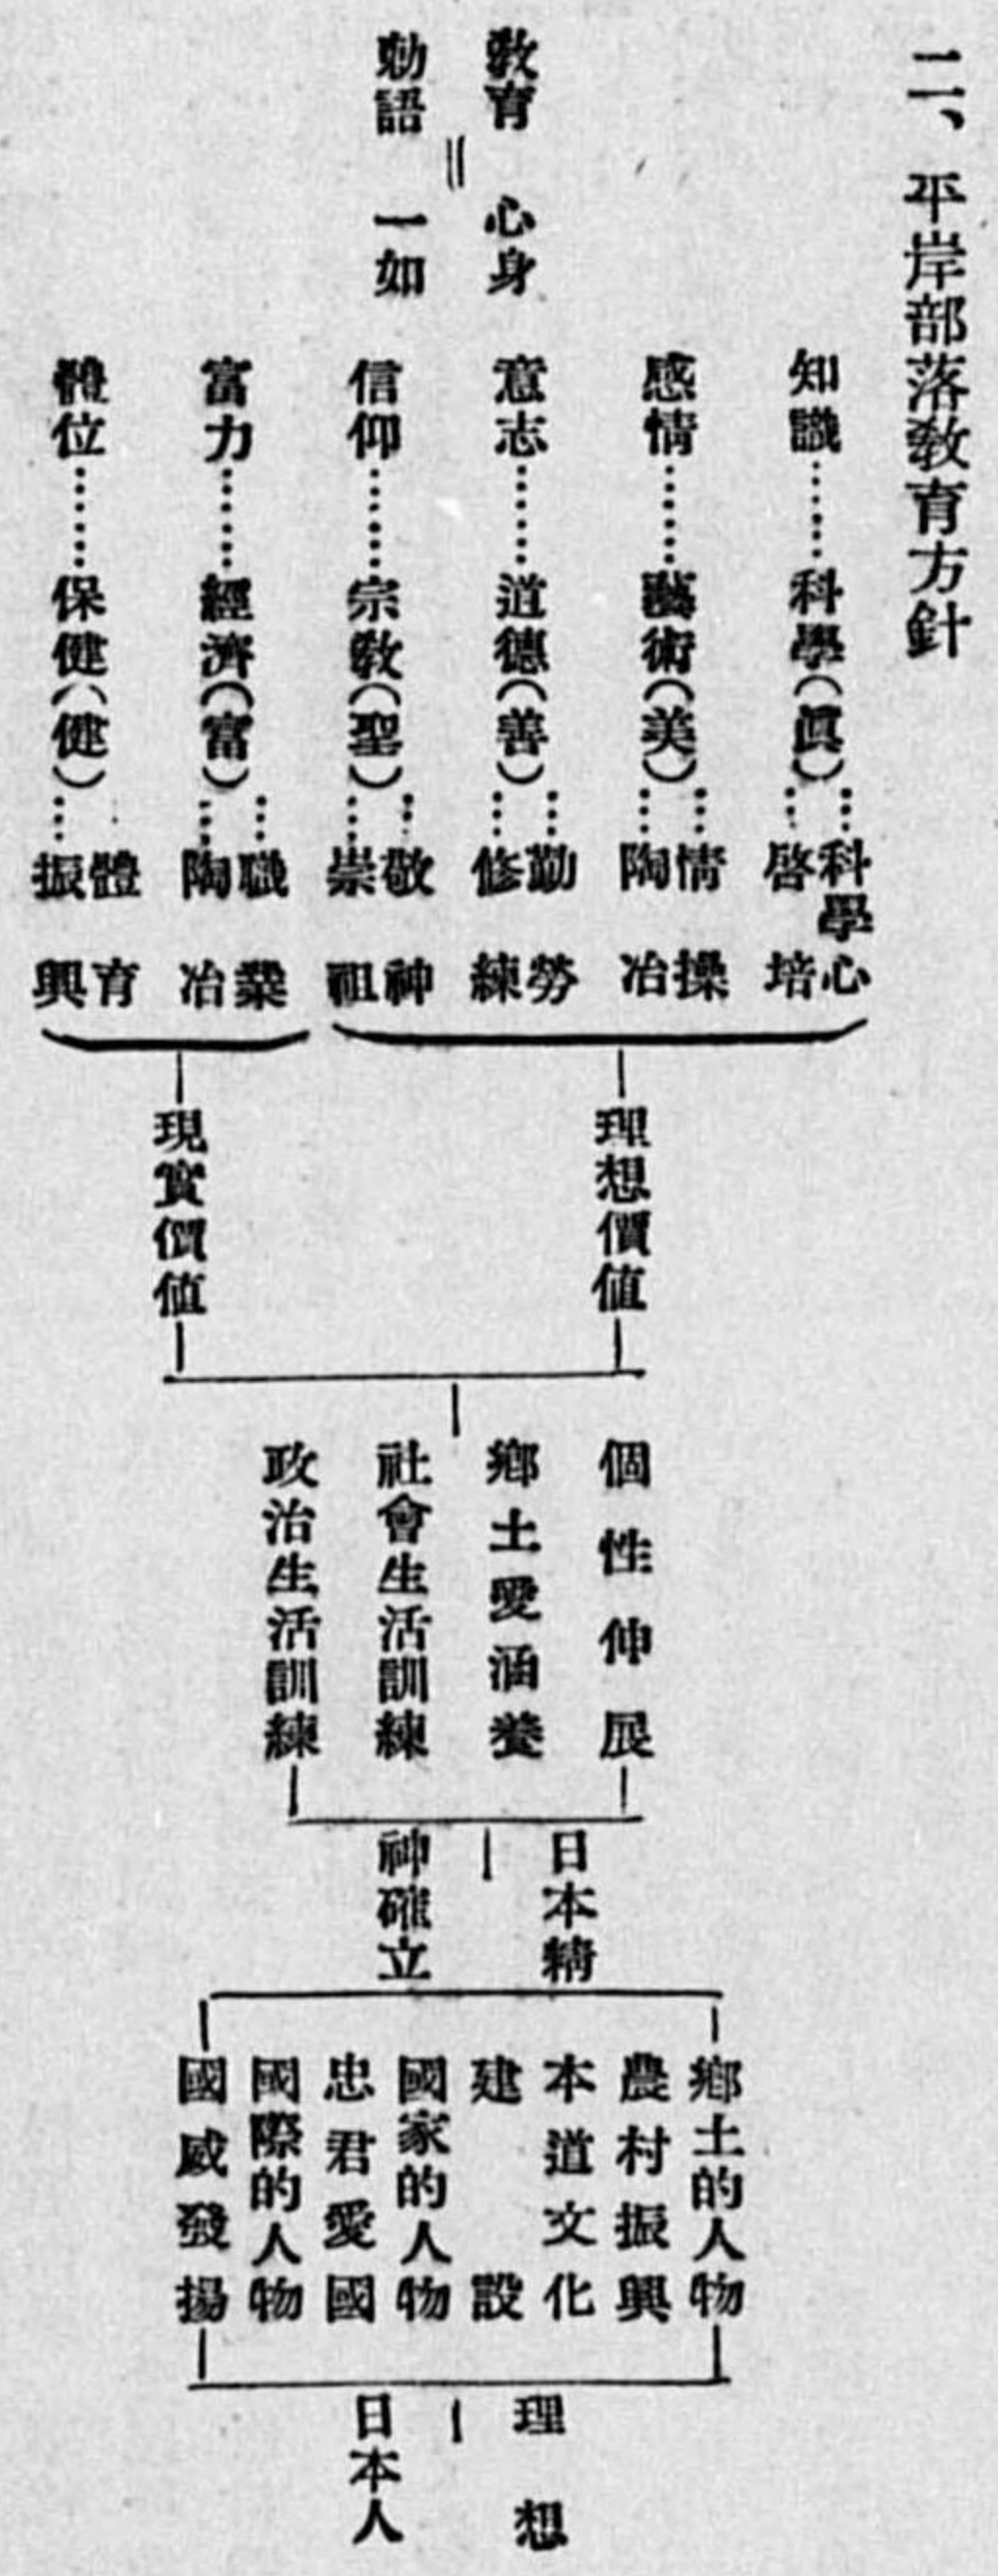 二、平岸部落敎育方針
敎育
勅語
心身
一如
知識………科學(眞)……科學心
啓培
感情………藝術(美)……情操
陶冶
意志………道德(善)……勤勞
修練
信仰………宗敎(聖)……敬神
崇祖
富力………經濟(富)……職業
陶冶
體位………保健(健)……體育
振興
理想價値
現實價値
個性伸展
鄕土愛涵養
社會生活訓練
政治生活訓練
日本精
神確立
鄕土的人物
農村振興
本道文化
建設
國家的人物
忠君愛國
國際的人物
國威發揚
理想
日本人